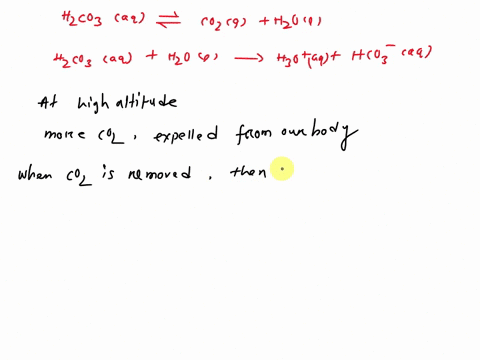 H2CO3 (aq) ⇌ CO2(g) + H2O(l)
H2CO3 (aq) + H2O(l) ⟶ H3O+(aq) + HCO3− (aq)
At high altitude
more CO2, expelled from our body
when CO2 is removed, then